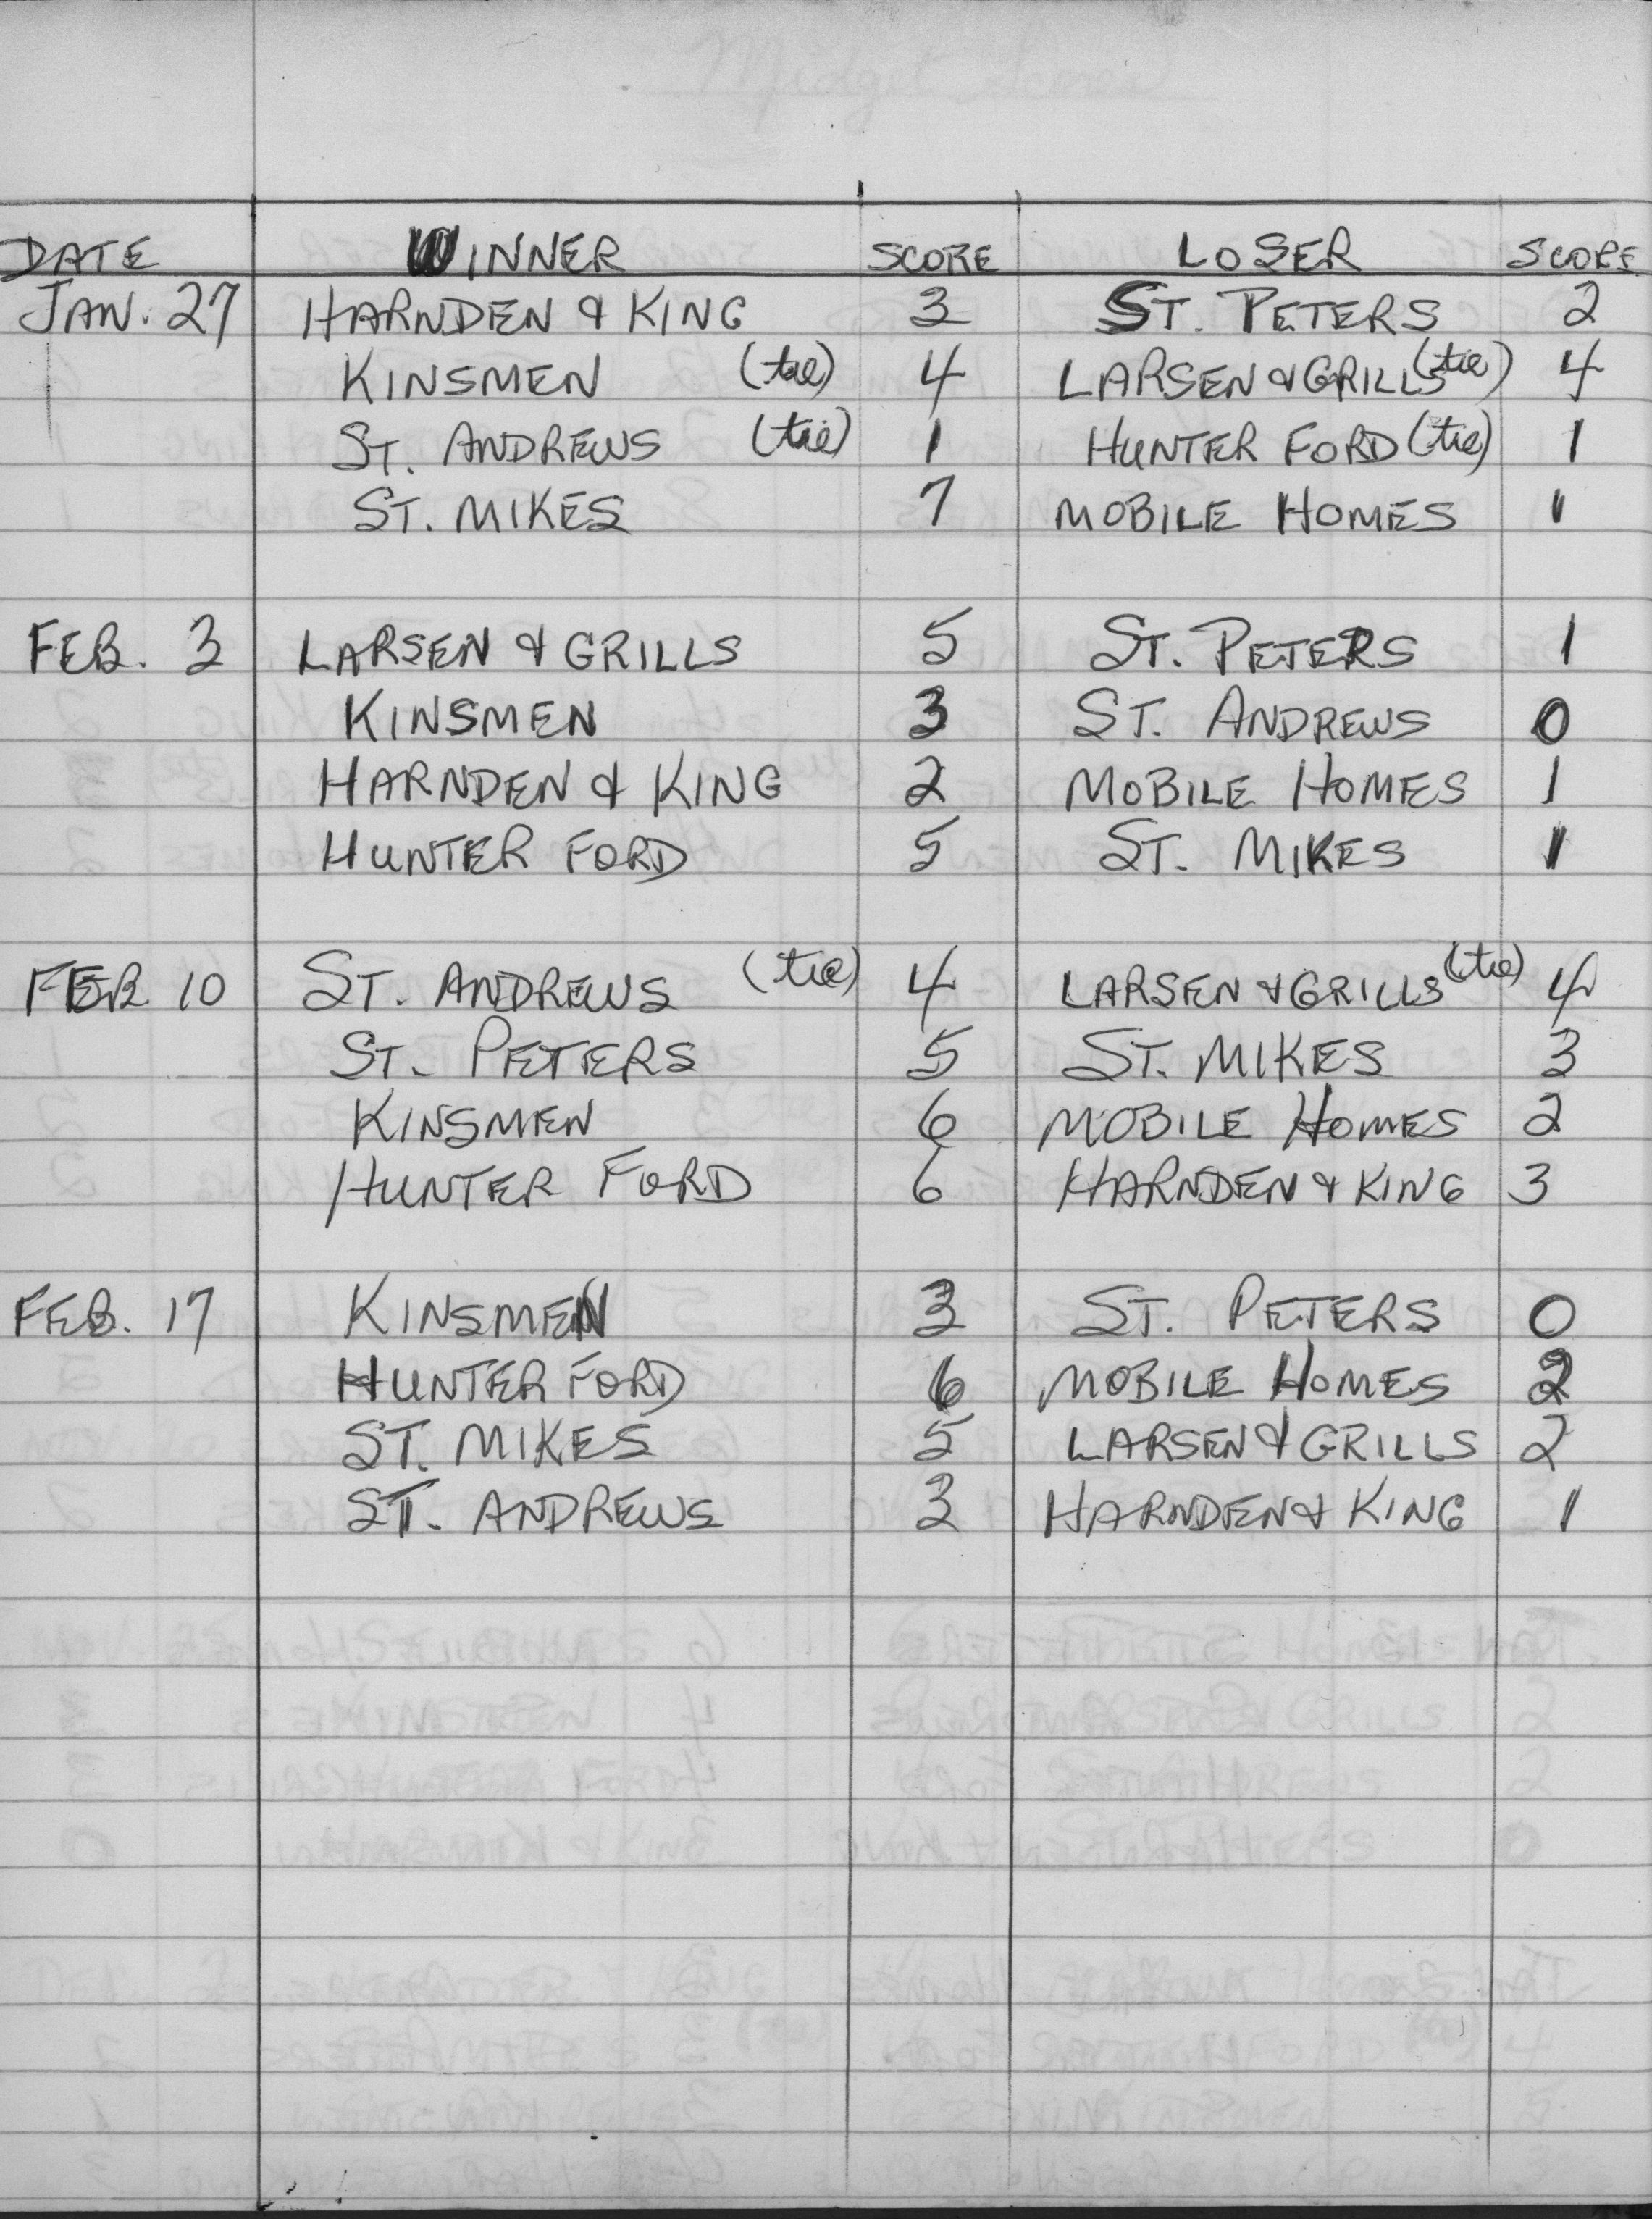 Midget Scores
DATE WINNER SCORE LOSER SCORE
JAN. 27 HARNDEN & KING 3 ST. PETERS 2
KINSMEN (tie) 4 LARSEN & GRILLS (tie) 4
ST. ANDREWS (tie) 1 HUNTER FORD (tie) 1
ST. MIKES 7 MOBILE HOMES 1
FEB. 3 LARSEN & GRILLS 5 ST. PETERS 1
KINSMEN 3 ST. ANDREWS 0
HARNDEN & KING 2 MOBILE HOMES 1
HUNTER FORD 5 ST. MIKES 1
FEB 10 ST. ANDREWS (tie) 4 LARSEN & GRILLS (tie) 4
ST. PETERS 5 ST. MIKES 3
KINSMEN 6 MOBILE HOMES 2
HUNTER FORD 6 HARNDEN & KING 3
FEB. 17 KINSMEN 3 ST. PETERS 0
HUNTER FORD 6 MOBILE HOMES 2
ST. MIKES 5 LARSEN & GRILLS 2
ST. ANDREWS 3 HARNDEN & KING 1